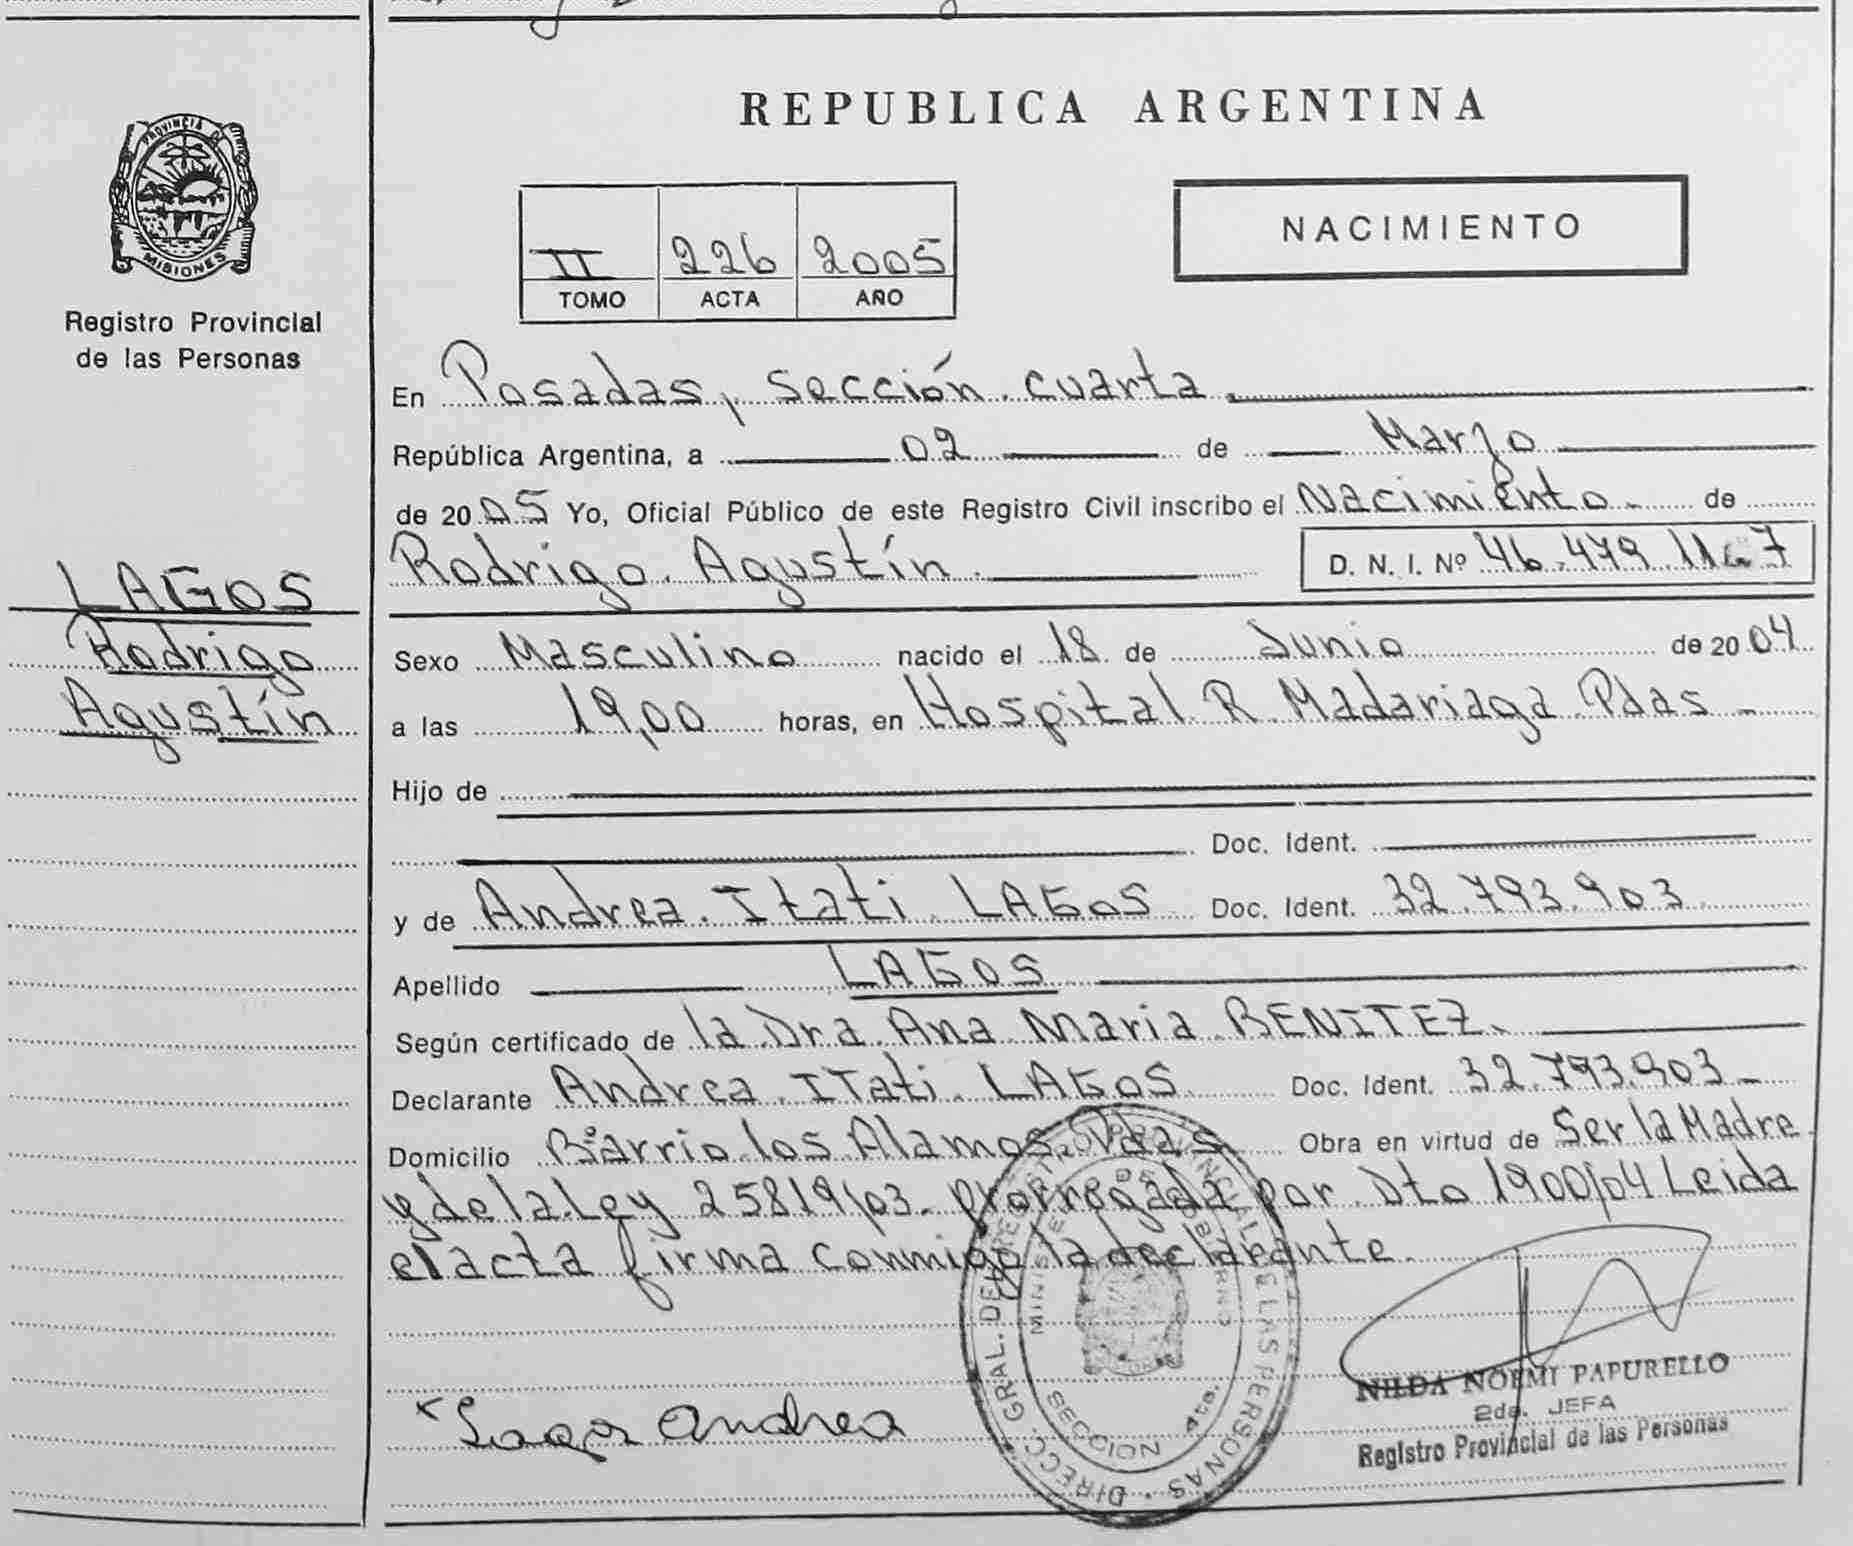 PROVINCIA DE
MISIONES
Registro Provincial
de las Personas
LAGOS
Rodrigo
Agustín
REPUBLICA ARGENTINA
II 226 2005
TOMO ACTA AÑO
NACIMIENTO
En Posadas, Sección cuarta
República Argentina, a 02 de Marzo
de 2005 Yo, Oficial Público de este Registro Civil inscribo el Nacimiento de
Rodrigo Agustín D. N. I. Nº
Sexo Masculino nacido el 18 de Junio de 2004
a las 19,00 horas, en Hospital R. Madariaga Pdas
Hijo de
Doc. Ident.
y de Andrea Itati LAGOS Doc. Ident. 32.793.903
Apellido LAGOS
Según certificado de la Dra Ana Maria BENITEZ
Declarante Andrea ITati LAGOS Doc. Ident. 32.793.903
Domicilio Barrio los Alamos Pdas Obra en virtud de Ser la Madre
y de la Ley 25819/03 prorrogada por Dto 1900/04 Leida
el acta firma conmigo la declarante.
Lagos Andrea
DIRECC. GRAL. DEL REGISTRO PROVINCIAL DE LAS PERSONAS
MINISTERIO DE GOBIERNO
SECCION 4ta.
NILDA NOEMI PAPURELLO
2da. JEFA
Registro Provincial de las Personas